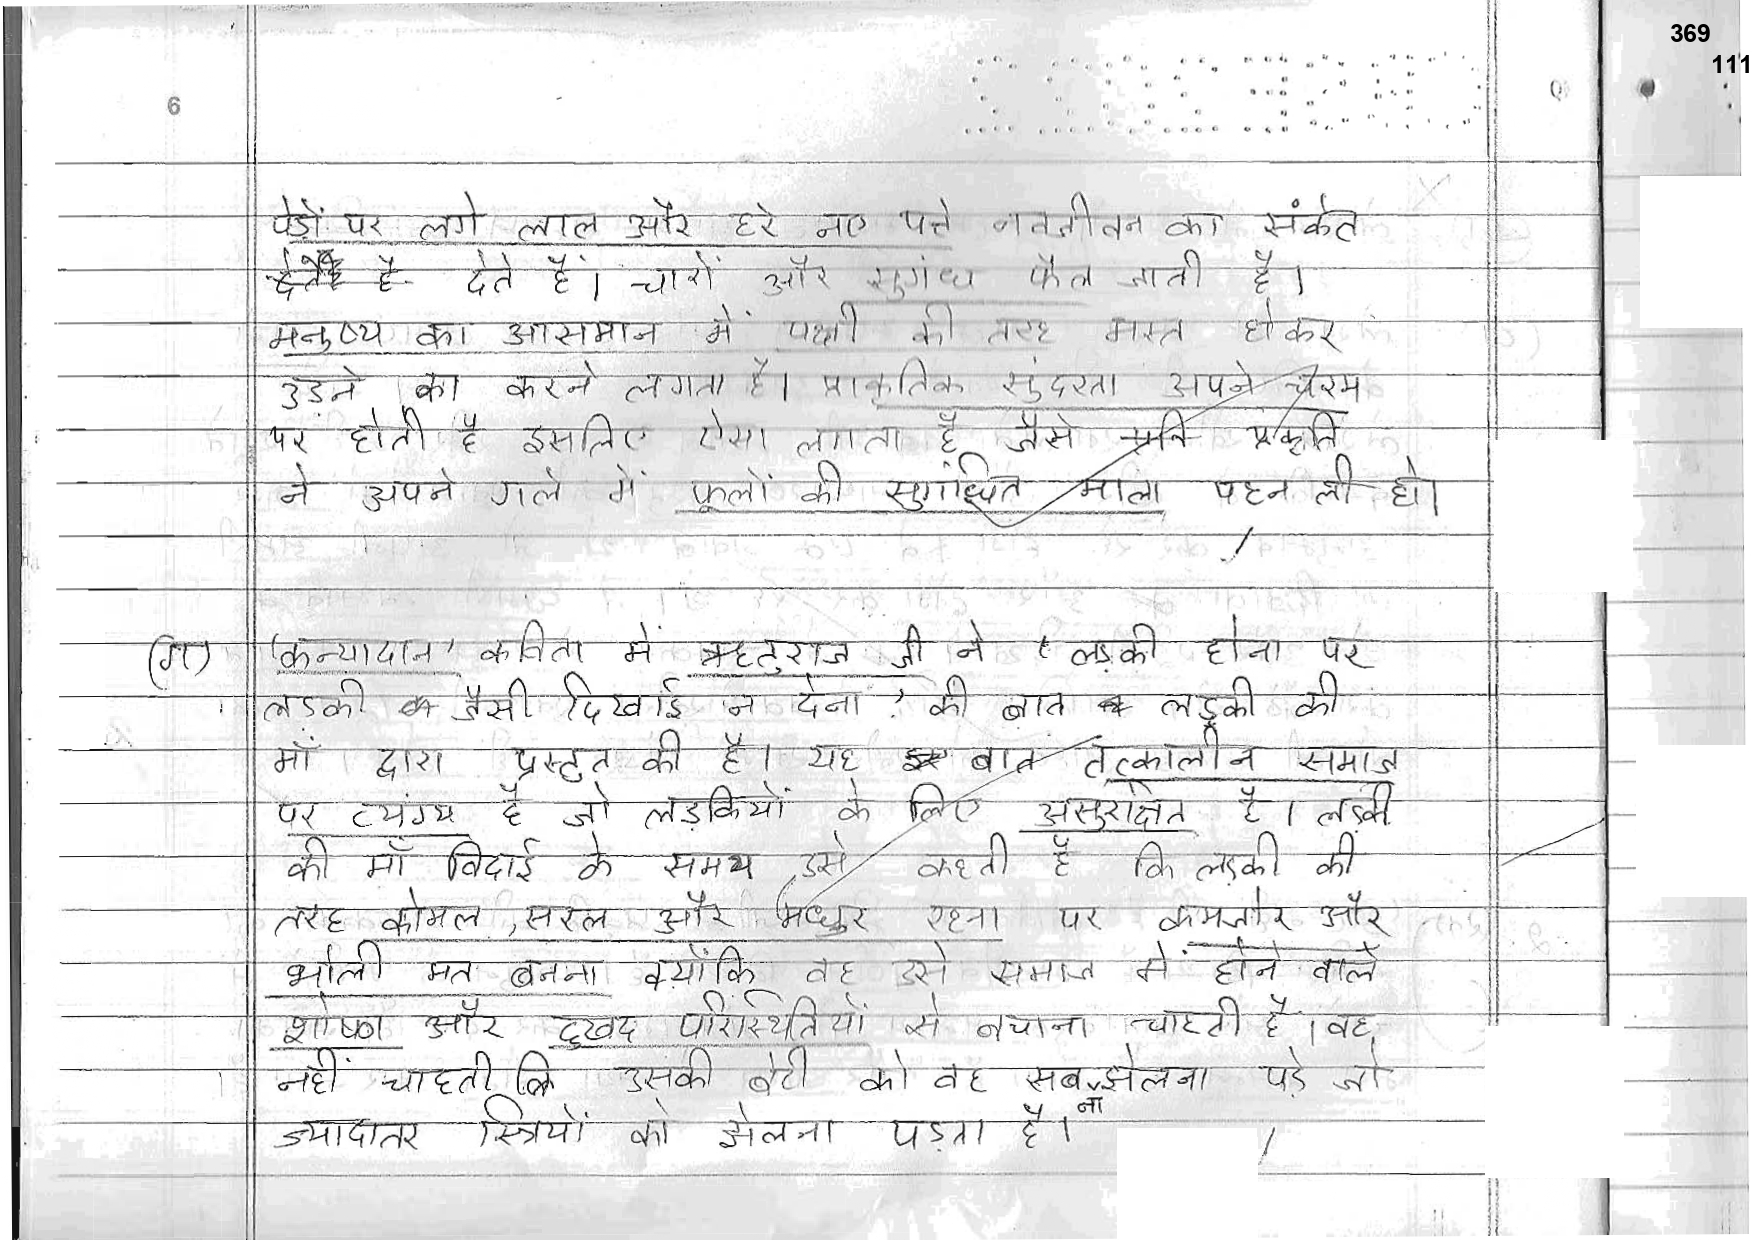 369
111
6
पेड़ों पर लगे लाल और हरे नए पत्ते नवजीवन का संकेत
देते हैं। चारों और सुगंध फैल जाती है।
मनुष्य का आसमान में पक्षी की तरह मस्त होकर
उड़ने का करने लगता है। प्राकृतिक सुंदरता अपने चरम
पर होती है इसलिए ऐसा लगता है जैसे प्रकृति
ने अपने गले में फूलों की सुगंधित माला पहन ली हो।
(ग) 'कन्यादान' कविता में ऋतुराज जी ने 'लड़की होना पर
लड़की जैसी दिखाई न देना' की बात लड़की की
माँ द्वारा प्रस्तुत की है। यह बात तत्कालीन समाज
पर व्यंग्य है जो लड़कियों के लिए असुरक्षित है। लड़की
की माँ विदाई के समय उसे कहती है कि लड़की की
तरह कोमल, सरल और मधुर रहना पर कमजोर और
भोली मत बनना क्योंकि वह उसे समाज में होने वाले
शोषण और दुखद परिस्थितियों से बचाना चाहती है। वह
नहीं चाहती कि उसकी बेटी को वह सब ना झेलना पड़े जो
ज्यादातर स्त्रियों को झेलना पड़ता है।